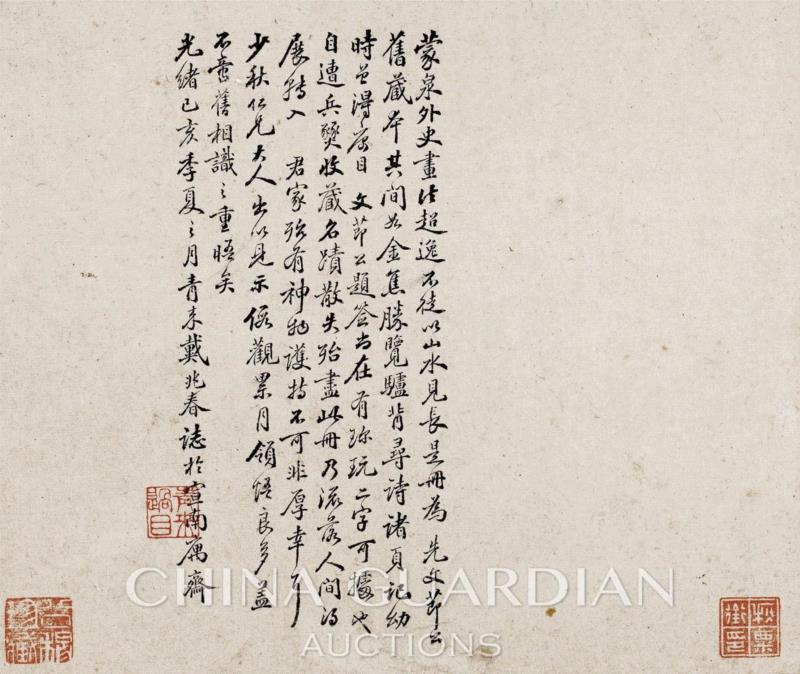 蒙泉外史畫法超逸不徒以山水見長是冊為 先文節公
舊藏本其間如金焦勝覽驢背尋詩諸頁記幼
時曾得寓目 文節公題簽尚在有珍玩二字可據也
自遭兵燹收藏名蹟散失殆盡此冊乃流落人間得
展轉入 君家殆有神物護持不可非厚幸耶
少秋仁兄大人出以見示假觀累月領悟良多蓋
不啻舊相識之重晤矣
光緒己亥季夏之月青來戴兆春誌於宣南寓齋
青來過目
秋粟
CHINA GUARDIAN
AUCTIONS